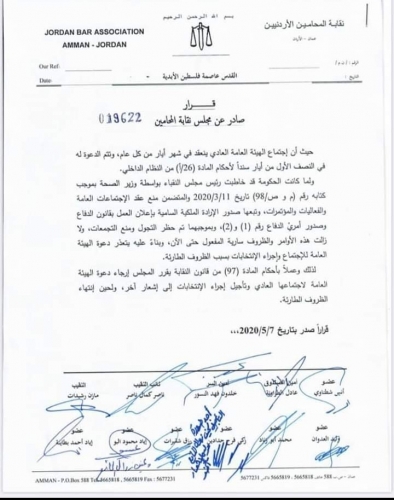 بسم الله الرحمن الرحيم
JORDAN BAR ASSOCIATION
AMMAN - JORDAN
نقابة المحامين الأردنيين
عمان - الأردن
Our Ref:
Date
الرقم :
التاريخ :
القدس عاصمة فلسطين الأبدية -
019622
قـــرار
صادر عن مجلس نقابة المحامين
حيث أن إجتماع الهيئة العامة العادي ينعقد في شهر أيار من كل عام، وتتم الدعوة له
في النصف الأول من أيار سنداً لأحكام المادة (26/أ) من النظام الداخلي.
ولما كانت الحكومة قد خاطبت رئيس مجلس النقباء بواسطة وزير الصحة بموجب
كتابه رقم (م و ص/98) تاريخ 2020/3/11 والمتضمن منع عقد الإجتماعات العامة
والفعاليات والمؤتمرات، وتبعها صدور الإرادة الملكية السامية بإعلان العمل بقانون الدفاع
وصدور أمريّ الدفاع رقم (1) و(2)، وبموجبهما تم حظر التجول ومنع التجمعات، ولا
زالت هذه الأوامر والظروف سارية المفعول حتى الآن، وبناءً عليه يتعذر دعوة الهيئة
العامة للإجتماع وإجراء الإنتخابات بسبب الظروف الطارئة.
لذلك وعملاً بأحكام المادة (97) من قانون النقابة يقرر المجلس إرجاء دعوة الهيئة
العامة لاجتماعها العادي وتأجيل إجراء الإنتخابات إلى إشعار آخر، ولحين إنتهاء
الظروف الطارئة.
قراراً صدر بتاريخ 2020/5/7...
عضو أمين الصندوق أمين السر نائب النقيب النقيب
أنس شطناوي عادل الطراونة خلدون فهد النسور ناصر كمال ناصر مازن رشيدات
عضو عضو عضو عضو عضو
وليد العدوان محمد أبو زناد إياد أحمد بطاينة
AMMAN - P.O.Box 588 Tel. 5665818 , 5665819 Fax : 5677231